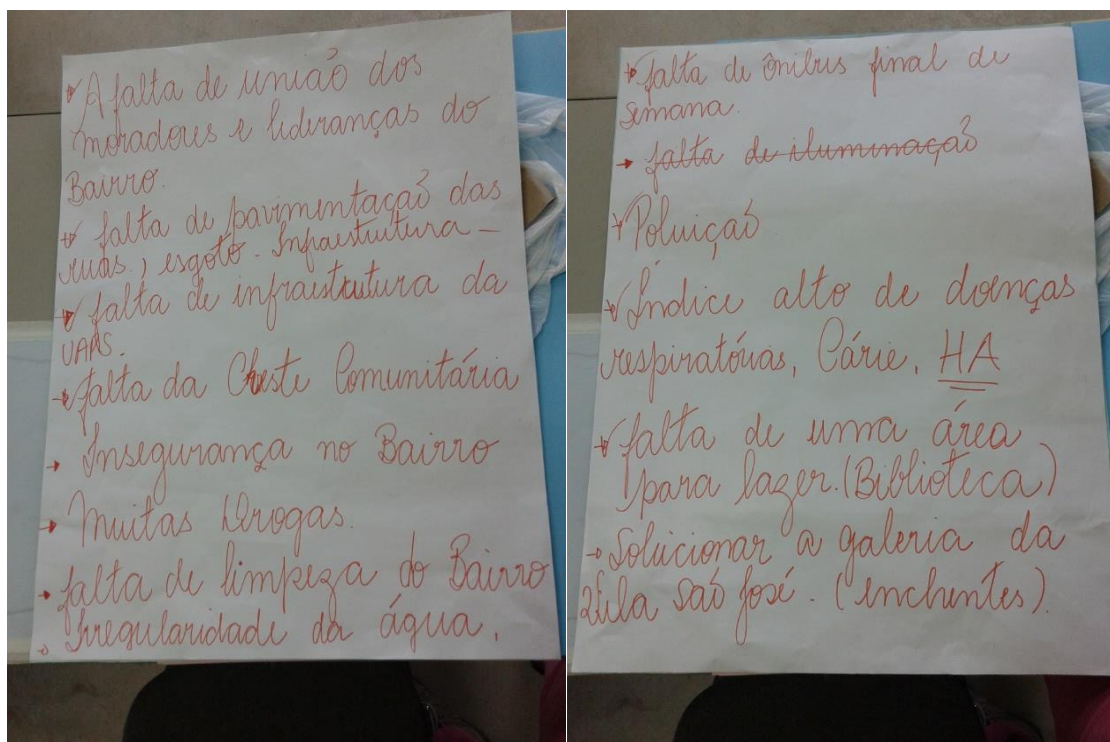 A falta de união dos
moradores e lideranças do
Bairro.
falta de pavimentação das
ruas, esgoto - Infraestrutura -
falta de infraestrutura da
UAPS.
falta da Creste Comunitária
Insegurança no Bairro
Muitas Drogas.
falta de limpeza do Bairro
Irregularidade da água.
falta de ônibus final de
semana.
falta de iluminação
Poluição
Índice alto de doenças
respiratórias, Cárie, HA
falta de uma área
para lazer. (Biblioteca)
Solucionar a galeria da
Vila São José. (enchentes).